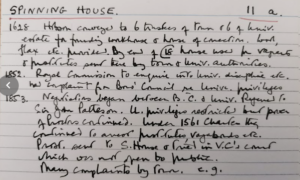 SPINNING HOUSE. 11 a.
1628. Hobson conveys to 6 trustees of town & 6 of Univ.
estate for founding workhouse & house of correction. Wool,
flax etc. provided. By end of 18 house used for vagrants
& prostitutes sent there by town & Univ. authorities.
1852. Royal Commission to enquire into Univ. discipline etc.
complaint from Boro' Council re Univ. privileges
1853. Negotiations began between B.C. & Univ. Referred to
Sir John Patteson. U. privileges restricted but power
of Proctors continued. Under 1561 Charter they
continued to arrest prostitutes vagabonds etc.
Prost. sent to S. House & tried in V.C's court
which was not open to public.
Many complaints by town, e.g.